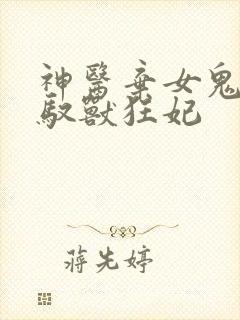 神醫棄女鬼
馭獸狂妃
蔣先婷